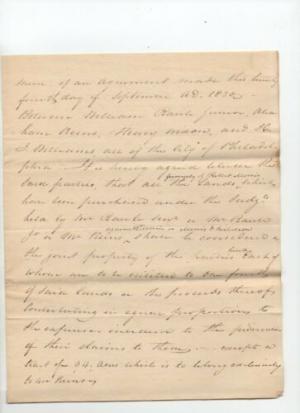 mem. of an agreement made this twenty
fourth day of September AD. 1830,
Between William Rawle junior, Abra
ham Kerns, Henry and H
J. Williams all of the City of Philadel
phia. It is hereby agreed between the
said parties, that all the lands, which
formerly of Robert Morris
have been purchased under the Judgt
held by Mr Rawle or Mr Rawle
Jr or Mr Kerns, shall be considered
the joint property of the parties Each of
whom are to be entitled to one fourth
of said lands or the proceeds thereof
Contributing in equal proportions to
the expenses to the
of their claims to them — except a
tract of 94. acres which is to belong exclusively
to Mr Kerns